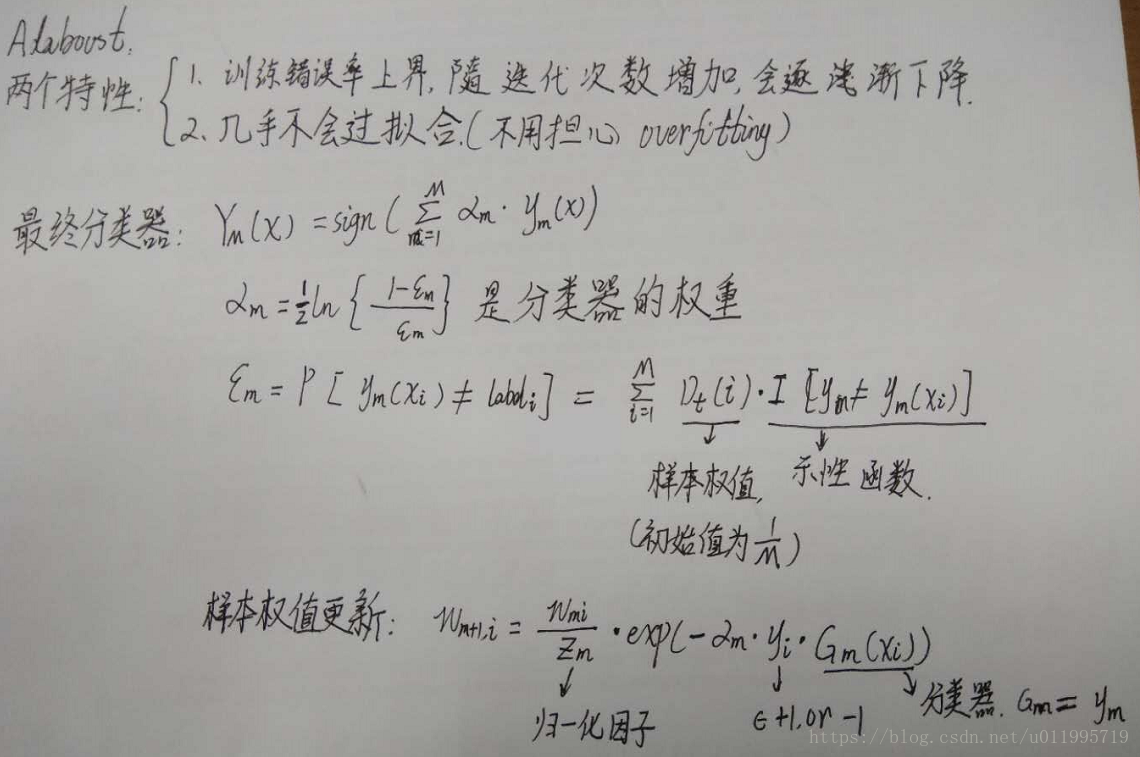 Adaboust.
两个特性: { 1. 训练错误率上界, 随迭代次数增加, 会逐渐下降.
2. 几乎不会过拟合.(不用担心 overfitting)
最终分类器: Y_M(x) = sign( Σ_{m=1}^{M} α_m · y_m(x))
α_m = 1/2 ln { (1-ε_m)/ε_m } 是分类器的权重
ε_m = P [ y_m(x_i) ≠ label_i ] = Σ_{i=1}^{M} D_t(i) · I [y_m ≠ y_m(x_i)]
样本权值, 示性函数.
(初始值为 1/M)
样本权值更新: W_{m+1,i} = W_{mi}/Z_m · exp(-α_m · y_i · G_m(x_i))
归一化因子 ∈ +1.or -1 分类器. G_m = y_m
https://blog.csdn.net/u011995719